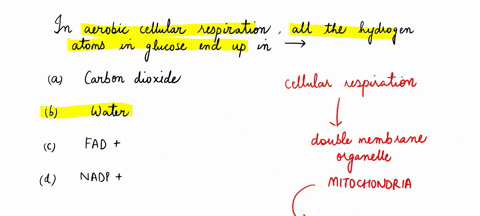 In aerobic cellular respiration, all the hydrogen
atoms in glucose end up in →
(a) Carbon dioxide
(b) Water
(c) FAD +
(d) NADP +
cellular respiration
double membrane
organelle
MITOCHONDRIA